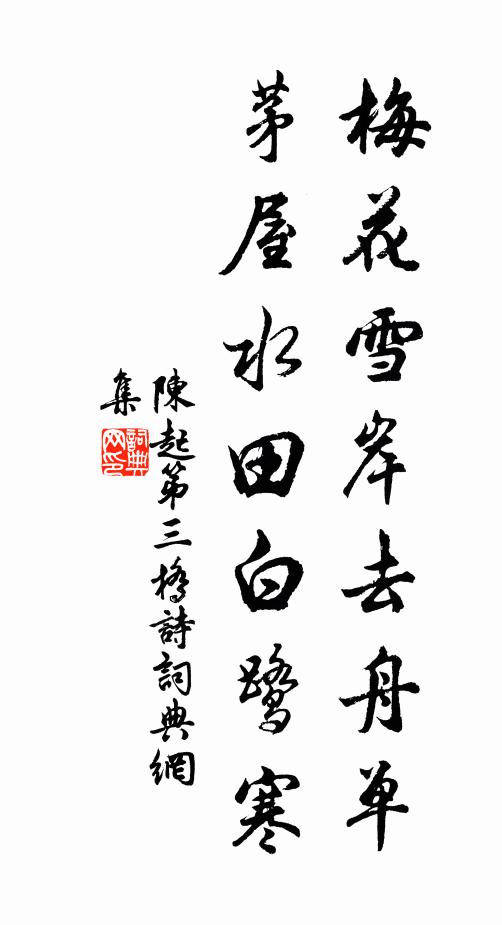 梅花雪岸去舟单
茅屋水田白鹭寒
陳起第三橋詩詞典網
集
詞典網印